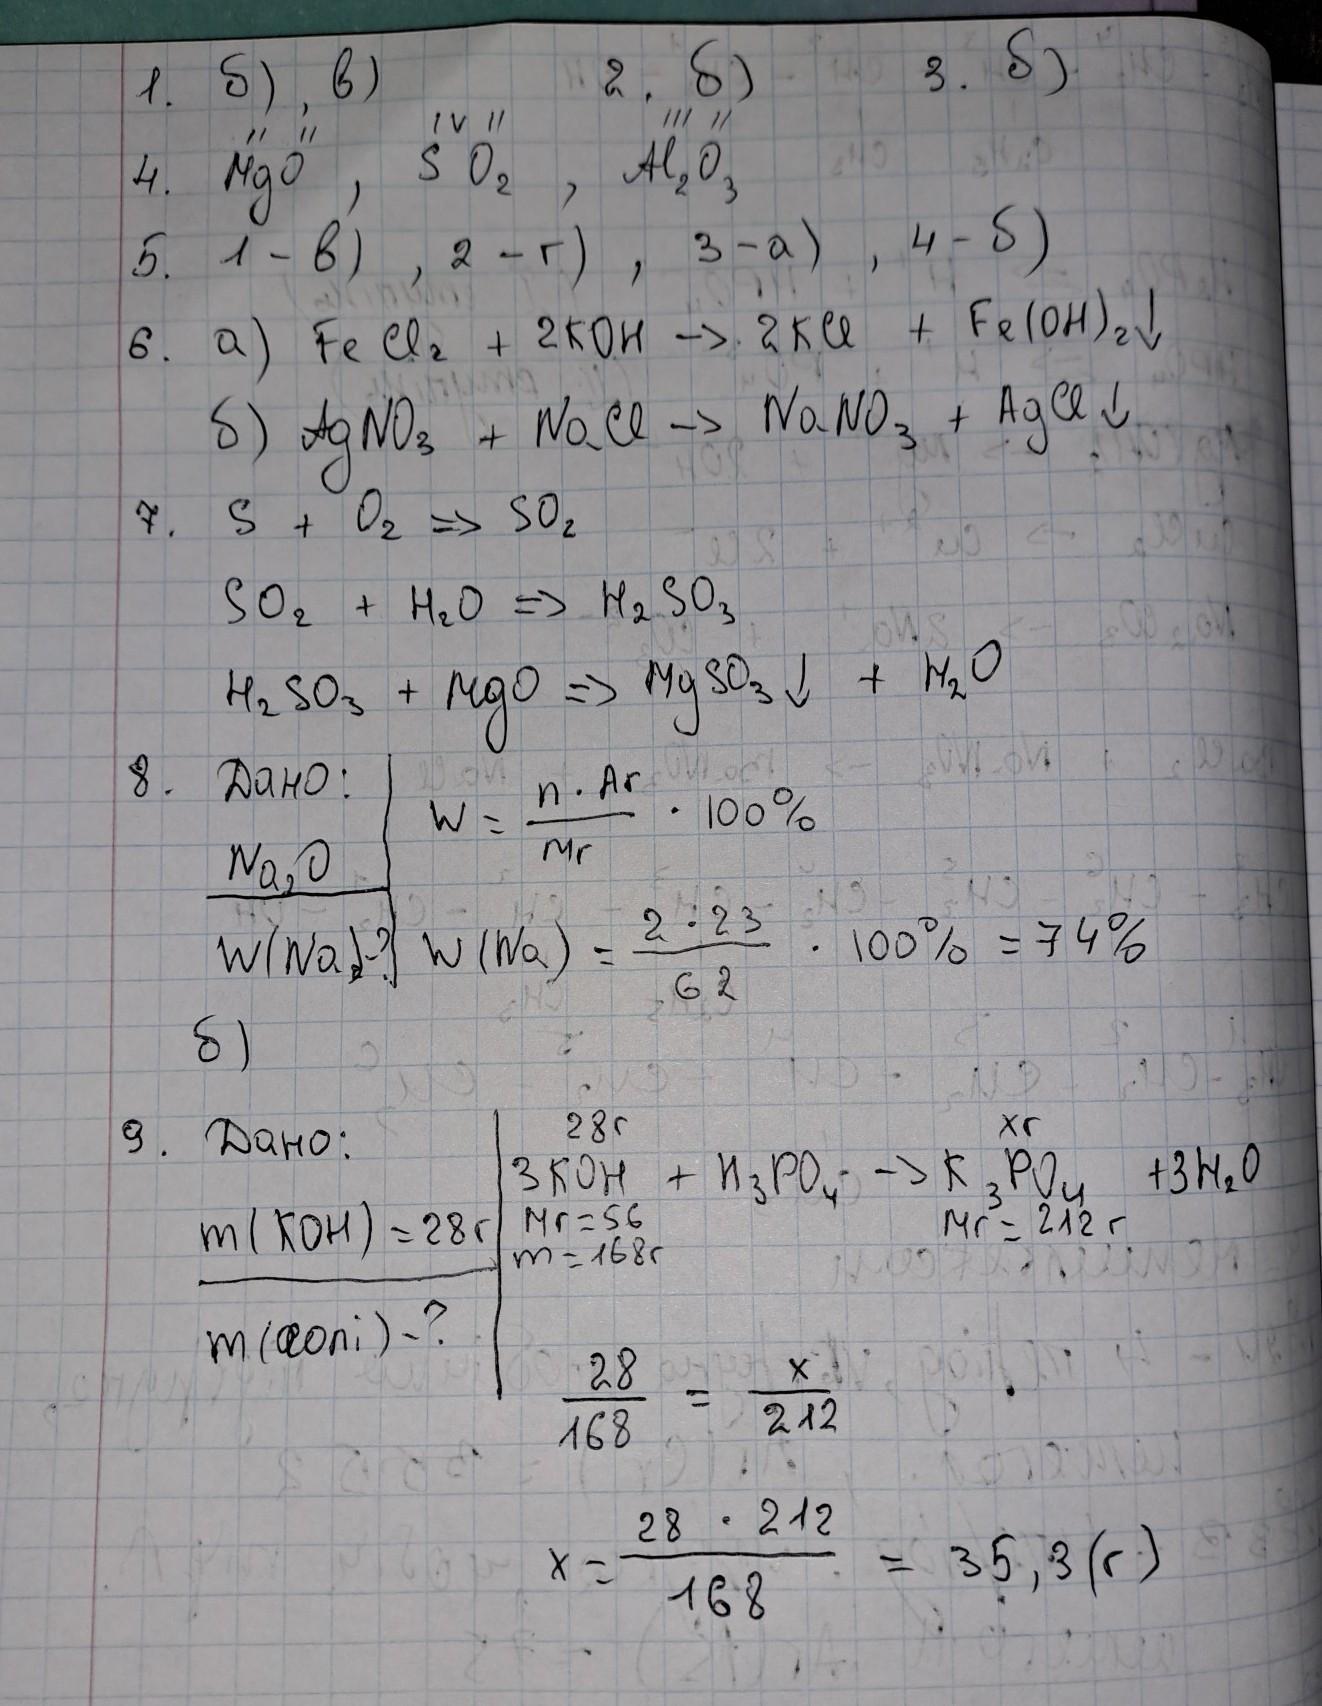 1. б), в) 2. б) 3. б)
II II IV II III II
4. MgO, SO₂, Al₂O₃
5. 1-в), 2-г), 3-а), 4-б)
6. а) FeCl₂ + 2KOH -> 2KCl + Fe(OH)₂↓
б) AgNO₃ + NaCl -> NaNO₃ + AgCl↓
7. S + O₂ => SO₂
SO₂ + H₂O => H₂SO₃
H₂SO₃ + MgO => MgSO₃↓ + H₂O
8. Дано:
Na₂O
W(Na)-?
W = n · Ar / Mr · 100%
W(Na) = 2 · 23 / 62 · 100% = 74%
б)
9. Дано:
m(KOH) = 28г
m(солі)-?
28г xг
3KOH + H₃PO₄ -> K₃PO₄ + 3H₂O
Mr = 56 Mr = 212г
m = 168г
28 / 168 = x / 212
x = 28 · 212 / 168 = 35,3 (г)